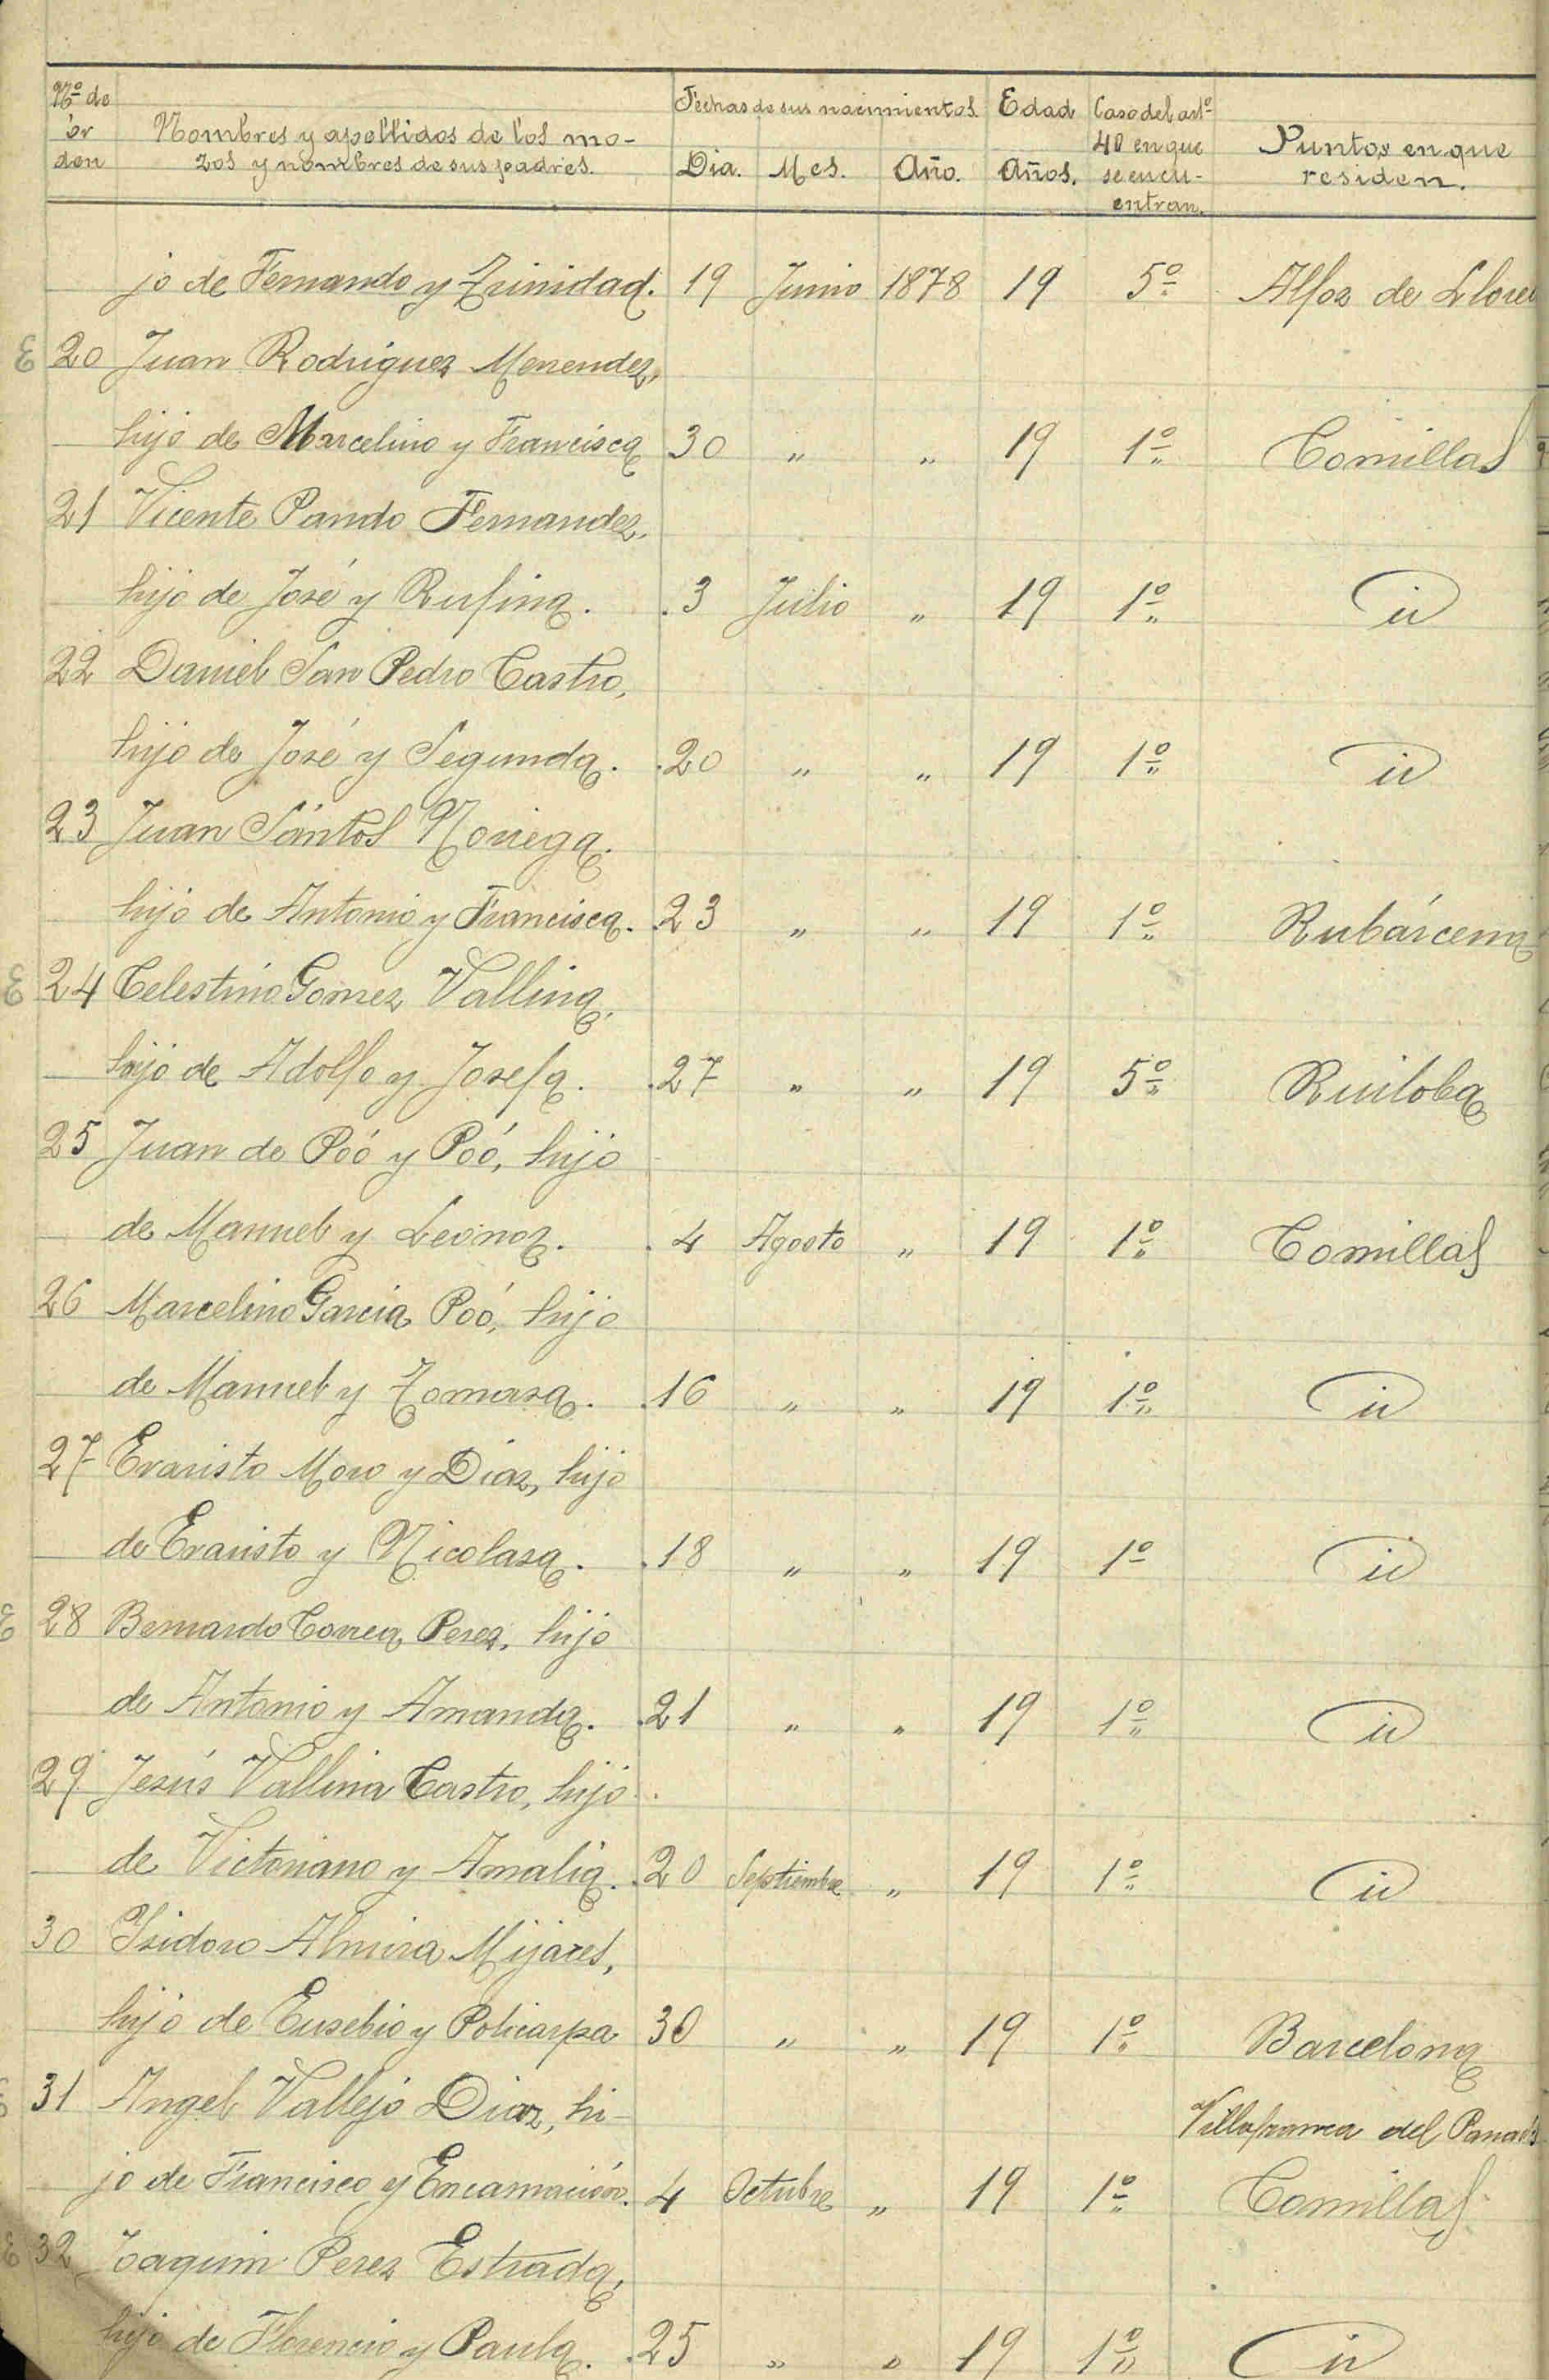 Nº de Fechas de sus nacimientos. Edad Caso del artº
ór Nombres y apellidos de los mo- 40 en que Puntos en que
den zos y nombres de sus padres. Dia. Mes. Año. Años. se encu- residen.
entran.
jo de Fernando y Trinidad. 19 Junio 1878 19 5º Alfoz de Llore
20 Juan Rodriguez Menendez,
hijo de Marcelino y Francisca 30 " " 19 1º Comillas
21 Vicente Pando Fernandez,
hijo de José y Rufina. 3 Julio " 19 1º id
22 Daniel San Pedro Castro,
hijo de José y Segunda. 20 " " 19 1º id
23 Juan Santos Noriega.
hijo de Antonio y Francisca. 23 " " 19 1º Rubárcena
24 Celestino Gomez Vallina,
hijo de Adolfo y Josefa. 27 " " 19 5º Ruiloba
25 Juan de Poó y Poó, hijo
de Manuel y Leonor. 4 Agosto " 19 1º Comillas
26 Marcelino Garcia Poó, hijo
de Manuel y Tomasa. 16 " " 19 1º id
27 Evaristo Moro y Diaz, hijo
de Evaristo y Nicolasa. 18 " " 19 1º id
28 Bernardo Correa Perez, hijo
de Antonio y Amanda. 21 " " 19 1º id
29 Jesús Vallina Castro, hijo
de Victoriano y Amalia. 20 Septiembre " 19 1º id
30 Ysidoro Almira Mijares,
hijo de Eusebio y Policarpa 30 " " 19 1º Barcelona
31 Angel Vallejo Diaz, hi- Villafranca del Panadés
jo de Francisco y Encarnación. 4 Octubre " 19 1º Comillas
32 Joaquin Perez Estrada,
hijo de Florencio y Paula. 25 " " 19 1º id